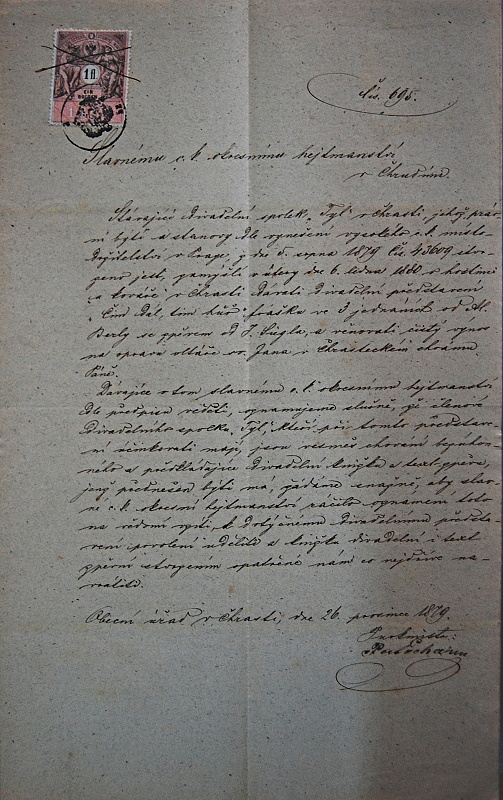 1 fl
EIN
Čís. 695.
Slavnému c. k. okresnímu hejtmanství
v Chrudimi.
Stávající divadelní spolek "Tyl" v Chrasti, jehož práv-
ní bytí a stanovy dle vynešení vysokého c. k. místo-
držitelství v Praze, z dne 5. srpna 1879 čís. 43609 stvr-
zeno jest, pomýšlí v úterý dne 6. ledna 1880 v hostinci
"u kováře" v Chrasti dávati divadelní představení
"Čím dál, tím hůř" fraška ve 3 jednáních od Al.
Berly se zpěvem od J. a věnovati čistý výnos
na opravu oltáře sv. Jana v Chrasteckém chrámu
Páně.
Dávajíce o tom slavnému c. k. okresnímu hejtmanství
dle předpisu věděti, oznamujeme slušně, že členové
divadelního spolku "Tyl", kteří při tomto představe-
ní účinkovati mají, jsou vesměs chování bezúhon-
ného a předkládajíce divadelní knížku s text zpěvu,
jenž přednešen býti má, žádáme snažně, aby slav-
né c. k. okresní hejtmanství ráčilo oznámení toto
na vědomí vzíti, k dotyčnému divadelnímu předsta-
vení povolení uděliti a knížku divadelní i text
zpěvní stvrzením opatřené nám co nejdříve na-
vrátiti.
Obecní úřad v Chrasti, dne 26. prosince 1879.
Purkmistr: